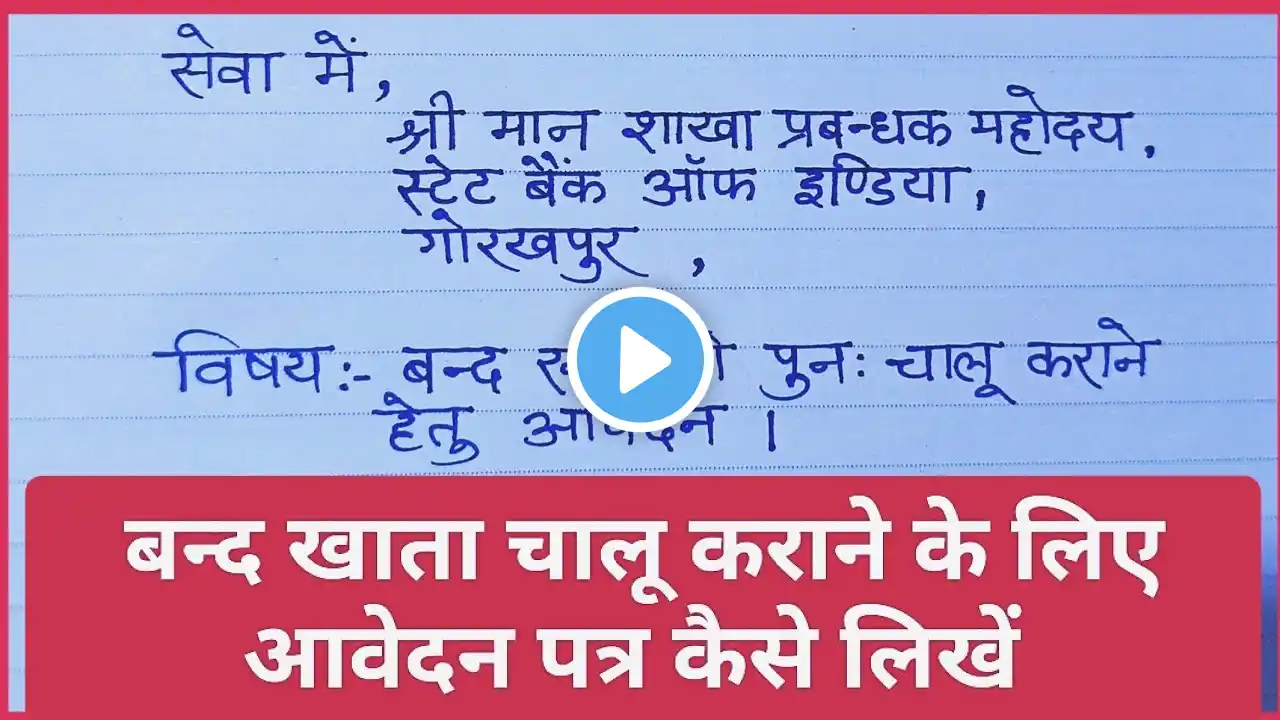 सेवा में,
श्री मान शाखा प्रबन्धक महोदय,
स्टेट बैंक ऑफ इण्डिया,
गोरखपुर ,
विषय:- बन्द पुनः चालू कराने
हेतु आवेदन ।
बन्द खाता चालू कराने के लिए
आवेदन पत्र कैसे लिखें